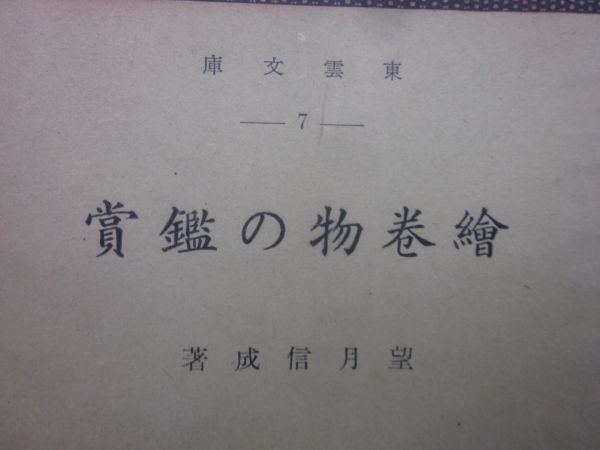 東雲文庫
7
繪卷物の鑑賞
望月信成著